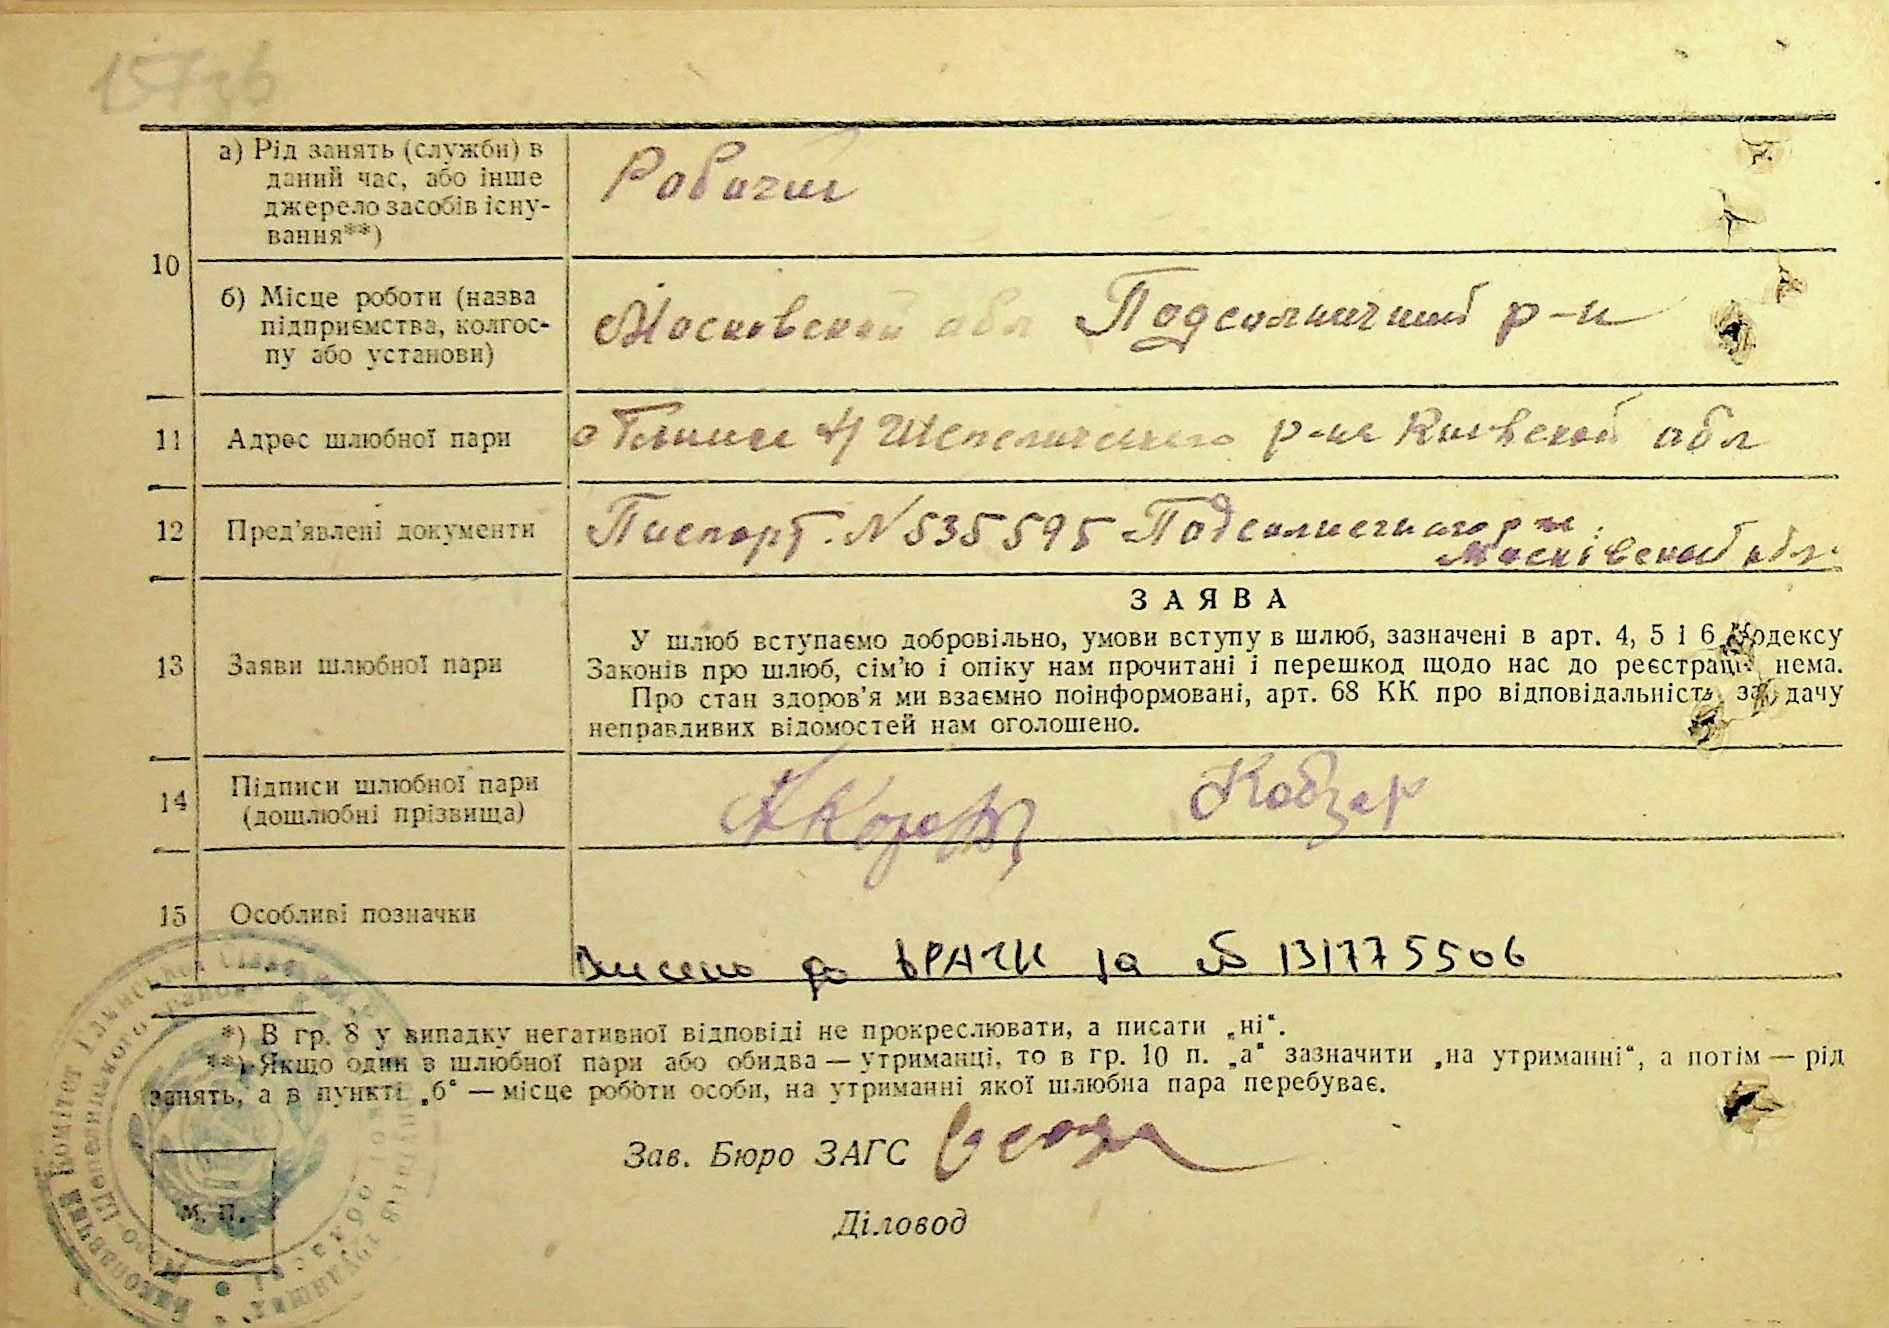 157зв
а) Рід занять (служби) в
даний час, або інше
джерело засобів існу-
вання**)
Робочий
10
б) Місце роботи (назва
підприємства, колгос-
пу або установи)
Московской обл р-н
11 Адрес шлюбної пари
р-на Киевской обл
12 Пред'явлені документи
Паспорт. N 535595
обл.
ЗАЯВА
13 Заяви шлюбної пари
У шлюб вступаємо добровільно, умови вступу в шлюб, зазначені в арт. 4, 5 і 6 Кодексу
Законів про шлюб, сім'ю і опіку нам прочитані і перешкод щодо нас до реєстрації нема.
Про стан здоров'я ми взаємно поінформовані, арт. 68 КК про відповідальність за дачу
неправдивих відомостей нам оголошено.
14 Підписи шлюбної пари
(дошлюбні прізвища)
Кобзар
15 Особливі позначки
Внесено до ДРАЦС за № 131775506
*) В гр. 8 у випадку негативної відповіді не прокреслювати, а писати „ні“.
**) Якщо один з шлюбної пари або обидва — утриманці, то в гр. 10 п. „а“ зазначити „на утриманні“, а потім — рід
занять, а в пункті „б“ — місце роботи особи, на утриманні якої шлюбна пара перебуває.
Зав. Бюро ЗАГС
Діловод
М. П.